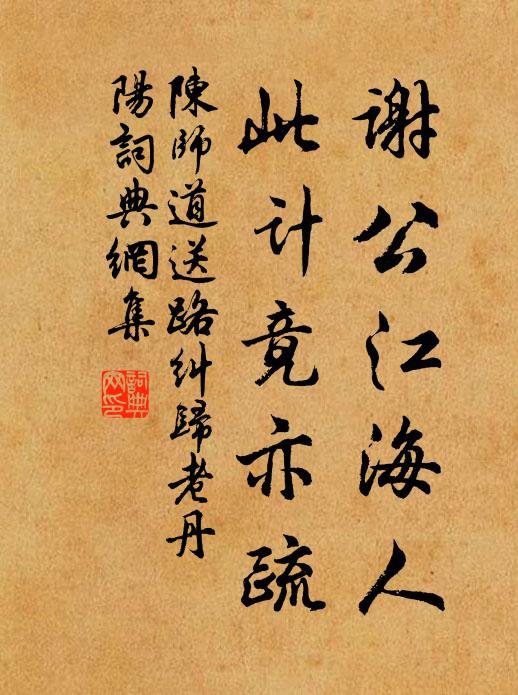 谢公江海人
此计竟亦疏
陳師道送路糾歸老丹
陽詞典網集
詞典
网印